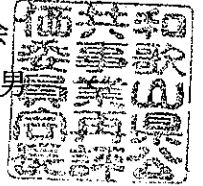 男
和歌山県公
共事業再評
価委員会